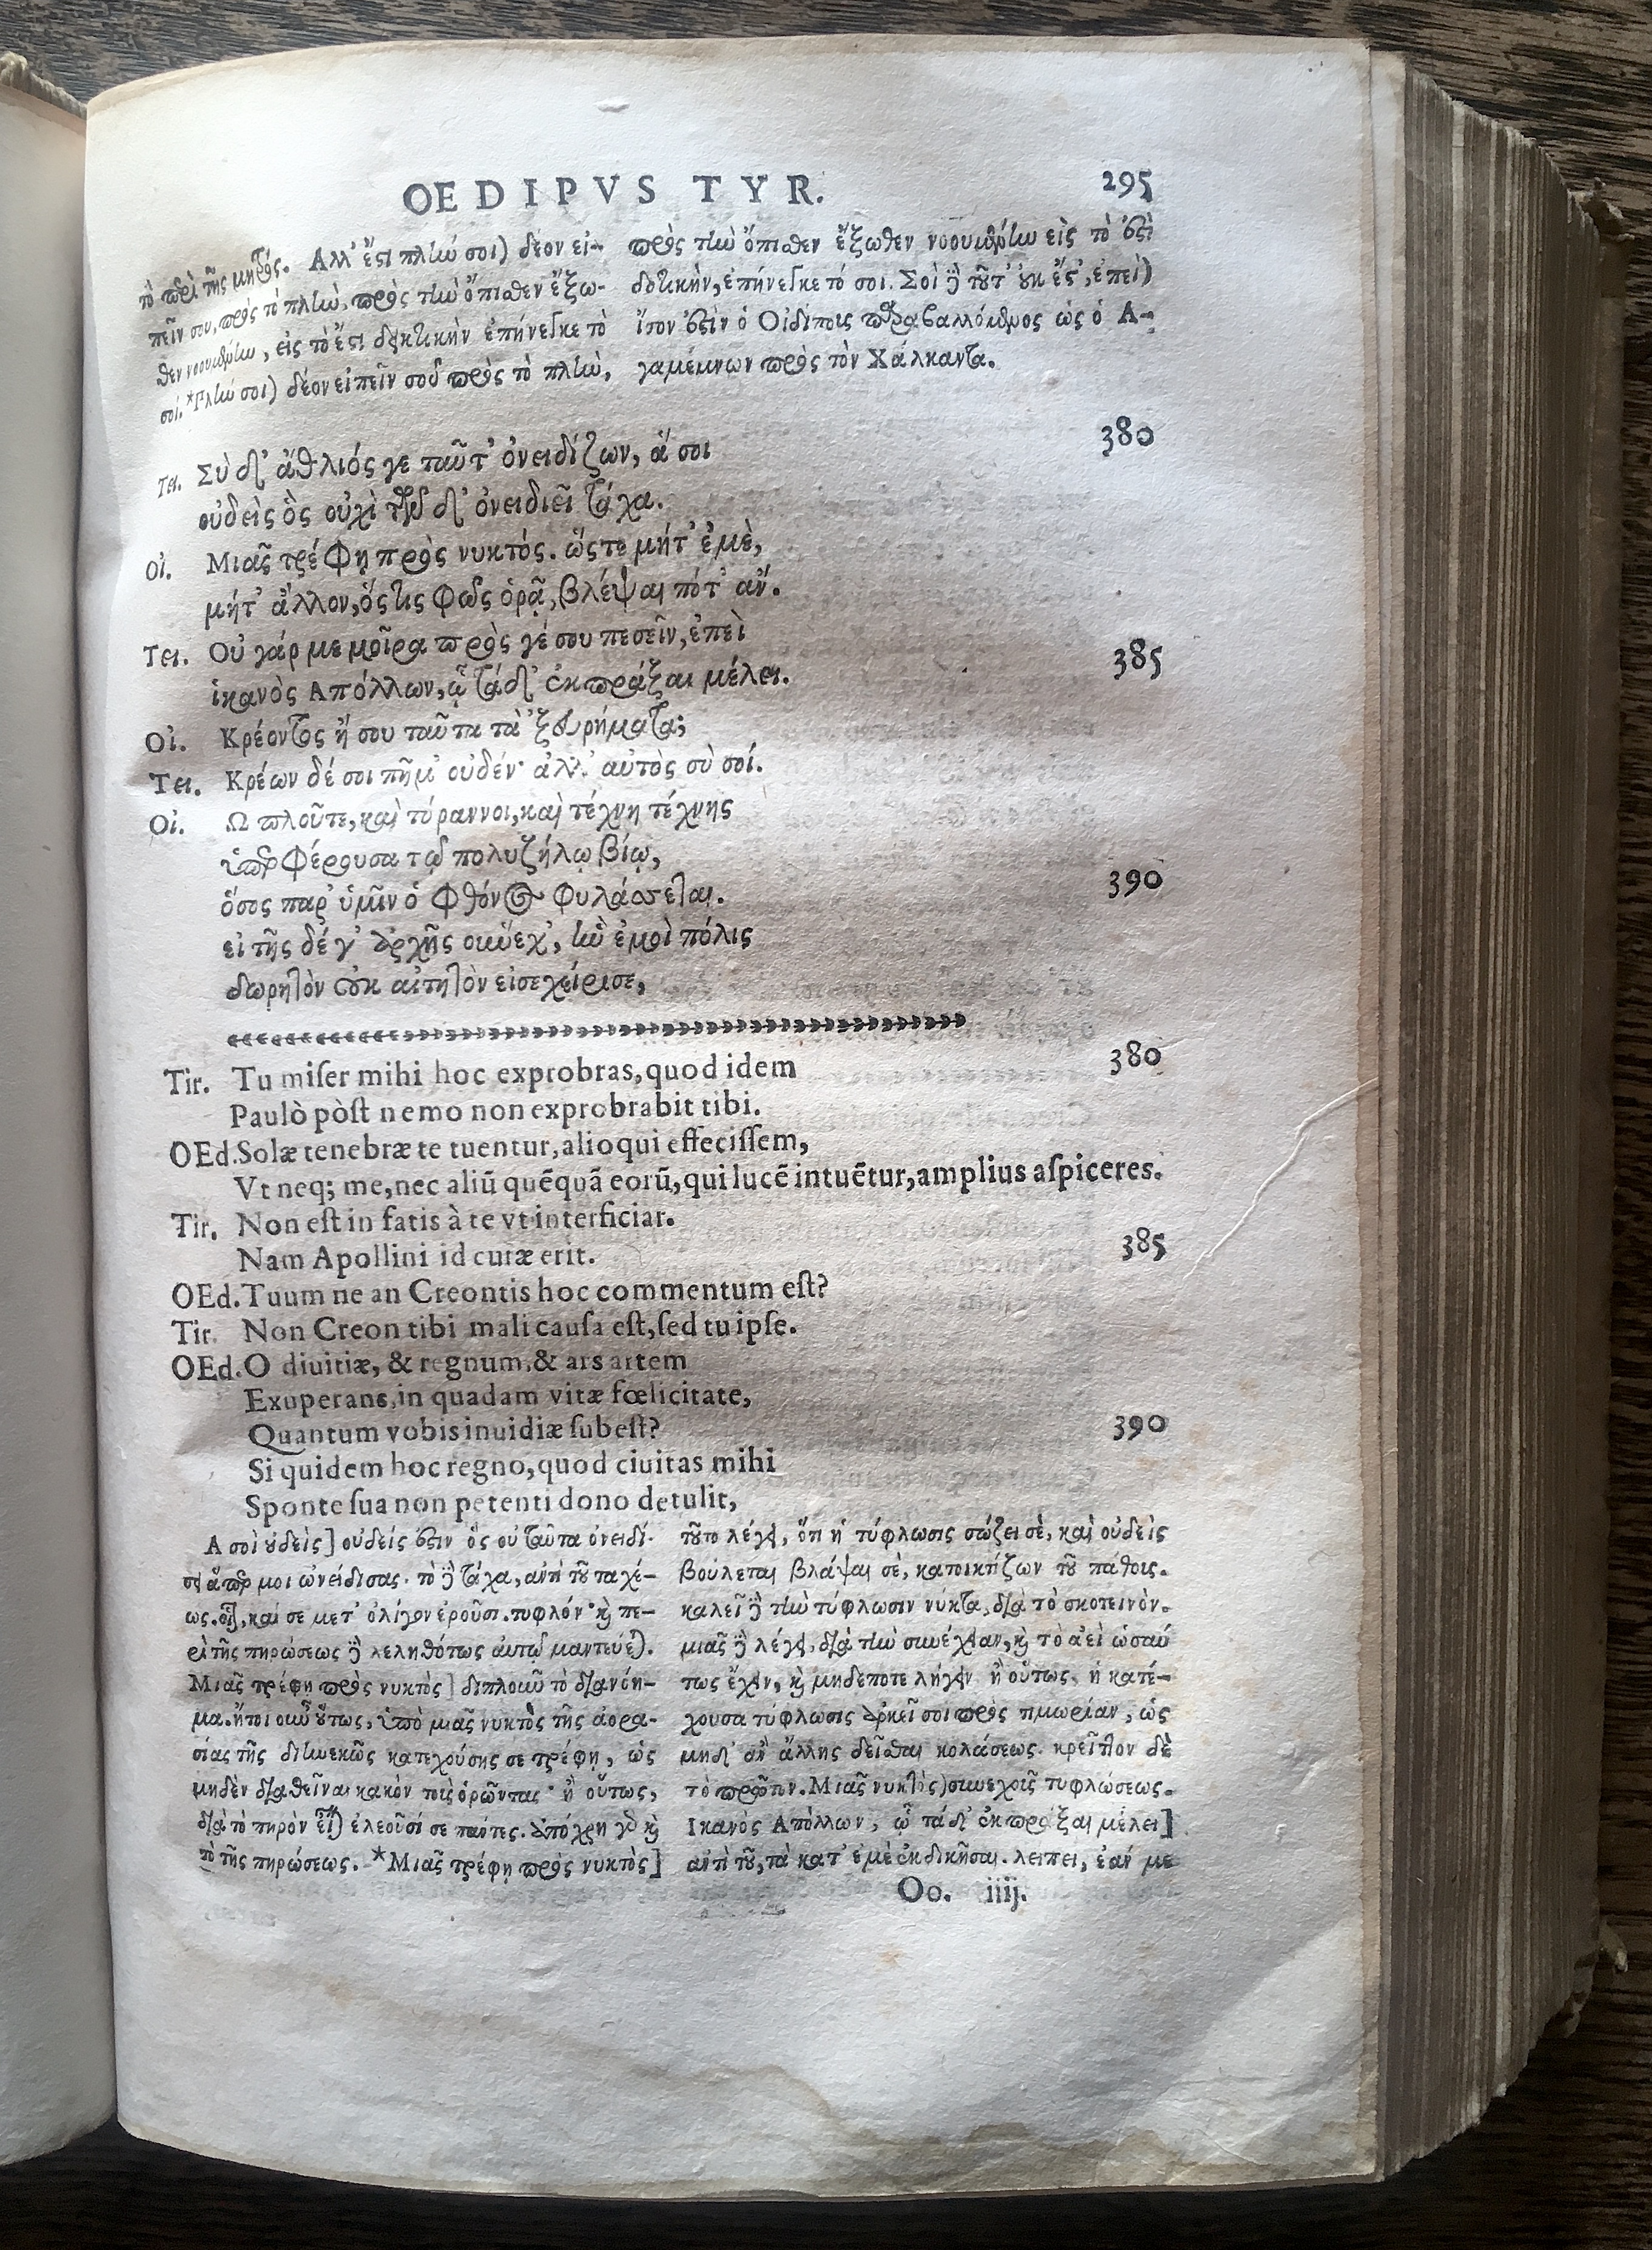 OEDIPVS TYR. 295
τὸ περὶ τῆς μητρός. Αλλ' ἔστι πλὴν σοι) δέον εἰ-
πεῖν σου, πρὸς τὸ πλὴν, πρὸς τὴν ὄπισθεν ἔξω-
θεν νοουμένην, εἰς τὸ ἔστι δεικτικὴν ἐπήνεγκε τὸ
σοί. *Πλὴν σοι) δέον εἰπεῖν σοῦ πρὸς τὸ πλὴν,
πρὸς τὴν ὄπισθεν ἔξωθεν νοουμένην εἰς τὸ ἐστὶ
δοτικὴν, ἐπήνεγκε τό σοι. Σοὶ δὲ τοῦτ' οὐκ ἔστ', ἐπεὶ)
ἴσον ἐστὶν ὁ Οἰδίπους παραβαλλόμενος ὡς ὁ Α-
γαμέμνων πρὸς τὸν Χάλκαντα.
Τει. Σὺ δ' ἄθλιός γε ταῦτ' ὀνειδίζων, ἅ σοι 380
οὐδεὶς ὃς οὐχὶ τῶνδ' ὀνειδιεῖ τάχα.
Οἰ. Μιᾶς τρέφῃ πρὸς νυκτός. ὥστε μήτ' ἐμὲ,
μήτ' ἄλλον, ὅστις φῶς ὁρᾷ, βλέψαι πότ' ἄν.
Τει. Οὐ γάρ με μοῖρα πρὸς γέ σου πεσεῖν, ἐπεὶ
ἱκανὸς Απόλλων, ᾧ τάδ' ἐκπράξαι μέλει. 385
Οἰ. Κρέοντος ἤ σου ταῦτα τὰ 'ξευρήματα;
Τει. Κρέων δέ σοι πῆμ' οὐδέν· ἀλλ' αὐτὸς σὺ σοί.
Οἰ. Ω πλοῦτε, καὶ τύραννοι, καὶ τέχνη τέχνης
ὑπερφέρουσα τῷ πολυζήλῳ βίῳ,
ὅσος παρ' ὑμῖν ὁ φθόνος φυλάσσεται. 390
εἰ τῆς δέ γ' ἀρχῆς οὕνεχ', ἣν ἐμοὶ πόλις
δωρητὸν οὐκ αἰτητὸν εἰσεχείρισε,
Tir. Tu miſer mihi hoc exprobras, quod idem 380
Paulò pòſt nemo non exprobrabit tibi.
OEd. Solæ tenebræ te tuentur, alioqui effeciſſem,
Vt neq; me, nec aliū quēquā eorū, qui lucē intuētur, amplius aſpiceres.
Tir. Non eſt in fatis à te vt interficiar.
Nam Apollini id curæ erit. 385
OEd. Tuum ne an Creontis hoc commentum eſt?
Tir. Non Creon tibi mali cauſa eſt, ſed tu ipſe.
OEd. O diuitiæ, & regnum, & ars artem
Exuperans, in quadam vitæ fœlicitate,
Quantum vobis inuidiæ ſubeſt? 390
Si quidem hoc regno, quod ciuitas mihi
Sponte ſua non petenti dono detulit,
Α σοὶ οὐδεὶς] οὐδείς ἐστιν ὃς οὐ ταῦτα ὀνειδί-
σει ἅπερ μοι ὠνείδισας. τὸ δὲ τάχα, ἀντὶ τοῦ ταχέ-
ως. καί σε μετ' ὀλίγον ἐροῦσι. τυφλόν· καὶ πε-
ρὶ τῆς πηρώσεως δὲ λεληθότως αὐτῷ μαντεύεται.
Μιᾶς τρέφῃ πρὸς νυκτὸς] διπλοῦν τὸ διανόη-
μα. ἤτοι οὖν οὕτως, ὑπὸ μιᾶς νυκτὸς τῆς ἀορα-
σίας τῆς διηνεκῶς κατεχούσης σε τρέφῃ, ὡς
μηδὲν διαθεῖναι κακὸν τοὺς ὁρῶντας· ἢ οὕτως,
διὰ τὸ πηρὸν εἶναι ἐλεοῦσί σε πάντες. ἀπόχρη γὰρ καὶ
τὸ τῆς πηρώσεως. *Μιᾶς τρέφῃ πρὸς νυκτὸς]
τοῦτο λέγει, ὅτι ἡ τύφλωσις σώζει σὲ, καὶ οὐδεὶς
βούλεται βλάψαι σὲ, κατοικτίζων τοῦ πάθους.
καλεῖ δὲ τὴν τύφλωσιν νύκτα, διὰ τὸ σκοτεινὸν.
μιᾶς δὲ λέγει, διὰ τὴν συνέχειαν, καὶ τὸ ἀεὶ ὡσαύ
τως ἔχειν, καὶ μηδέποτε λήγειν ἢ οὕτως. ἡ κατέ-
χουσα τύφλωσις ἀρκεῖ σοι πρὸς τιμωρίαν, ὡς
μηδ' ἂν ἄλλης δεῖσθαι κολάσεως. κρεῖττον δὲ
τὸ πρῶτον. Μιᾶς νυκτὸς) συνεχοῦς τυφλώσεως.
Ικανὸς Απόλλων, ᾧ τάδ' ἐκπράξαι μέλει]
ἀντὶ τοῦ, τὰ κατ' ἐμὲ ἐκδικῆσαι. λείπει, ἐάν με
Oo. iiij.